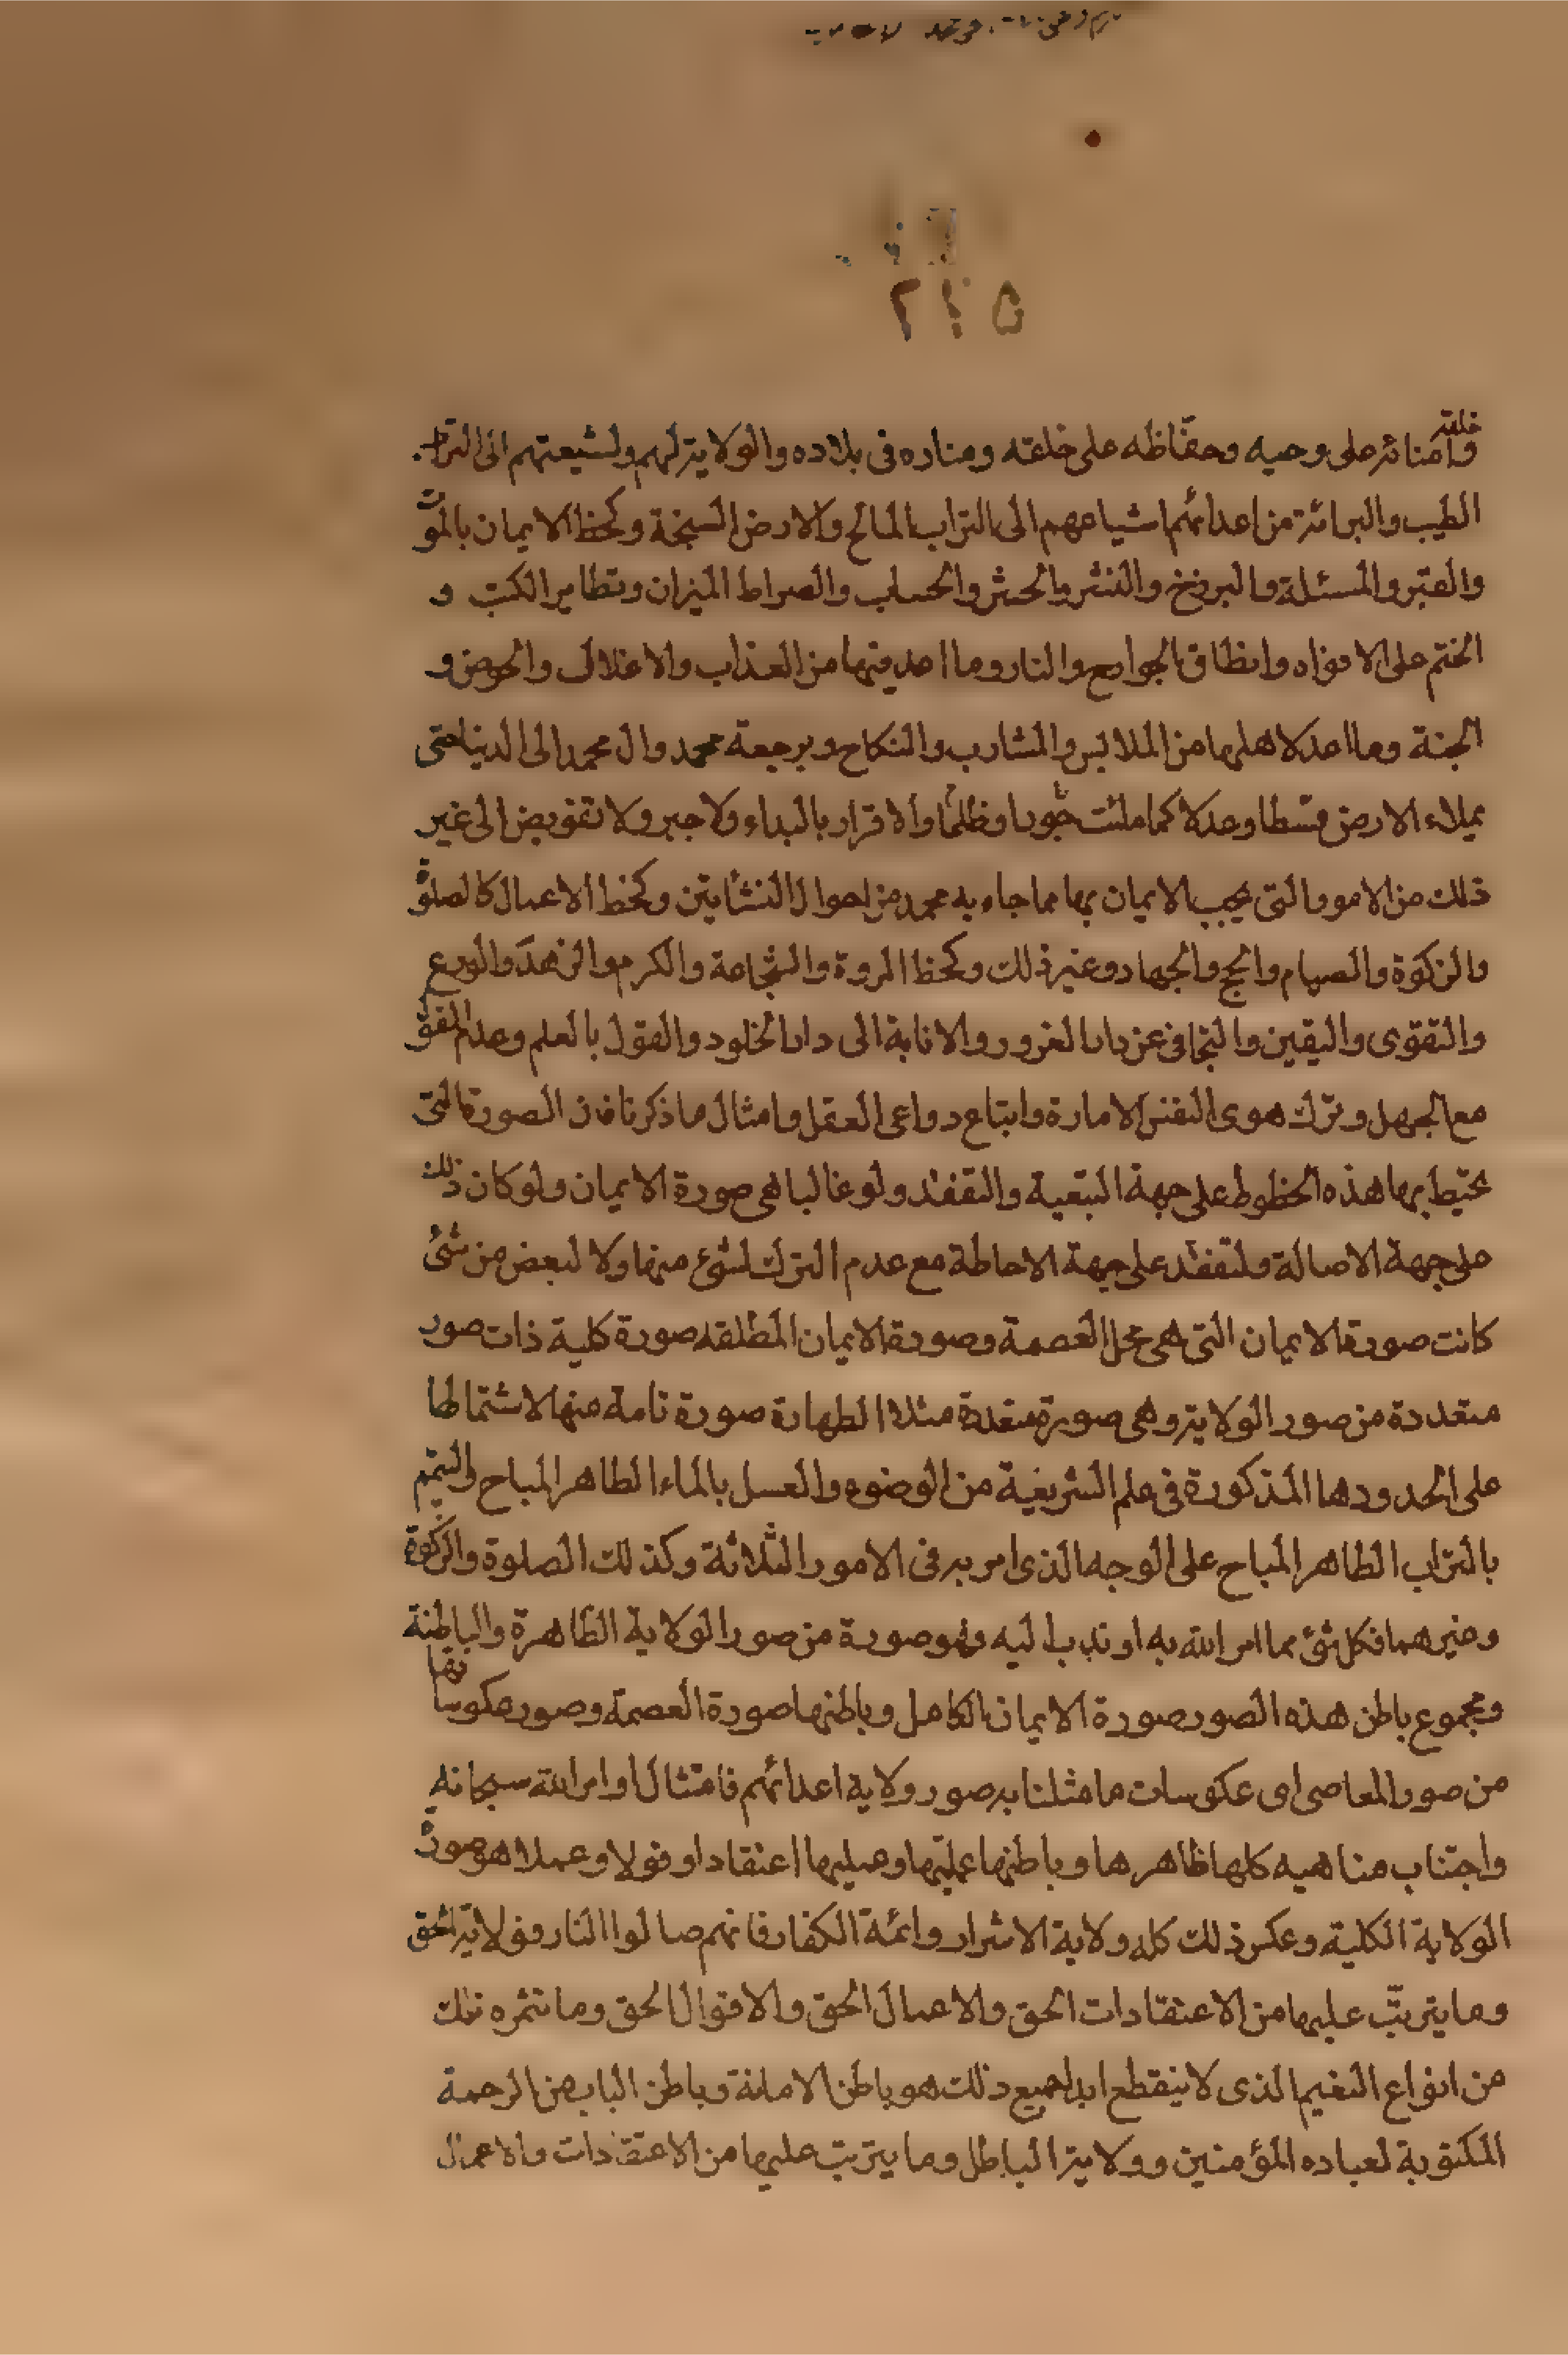 خلقه
وامنائه على وحيه وحفّاظه على خلقه ومناره فى بلاده والولاية لهم ولشيعتهم الى التراب
الطيب والبرائة من اعدائهم اشياعهم الى التراب المالح والارض السبخة وكحظ الايمان بالموت
والقبر والمسئلة والبرزخ والنشر والحشر والحساب والصراط الميزان وتطاير الكتب و
الختم على الافواه وانطاق الجوارح والنار وما اعد فيها من العذاب والاغلال والحوض و
الجنة وما اعد لاهلها من الملابس والمشارب والنكاح وبرجعة محمد وال محمد الى الدنيا حتى
يملاء الارض قسطا وعدلا كما ملئت جورا وظلما والاقرار بالبداء ولا جبر ولا تفويض الى غير
ذلك من الامور التى يجب الايمان بها مما جاء به محمد من احوال النشأتين وكحظ الاعمال كالصلوة
والزكوة والصيام والحج والجهاد وغير ذلك وكحظ المروة والشجاعة والكرم والزهد والورع
والتقوى واليقين والتجافى عن دار الغرور والانابة الى دار الخلود والقول بالعلم وعدم القول
مع الجهل وترك هوى النفس الامارة واتباع دواعى العقل وامثال ما ذكرنا فان الصورة التى
تحيط بها هذه الحظوط على جهة التبعية والتفقد ولو غالبا هى صورة الايمان ولو كان ذلك
على جهة الاصالة والتفقد على جهة الاحاطة مع عدم الترك لشىء منها ولا لبعض من شئ
كانت صورة الايمان التى هى محل العصمة وصورة الايمان المطلقه صورة كلية ذات صور
متعددة من صور الولاية وهى صورة متعددة مثلا الطهارة صورة تامة منها لاشتمالها
على الحدودها المذكورة فى علم الشريعة من الوضوء والغسل بالماء الطاهر المباح والتيمم
بالتراب الطاهر المباح على الوجه الذى امر به فى الامور الثلاثة وكذلك الصلوة والزكوة
وغيرهما فكل شئ مما امر الله به او ندب اليه فهو صورة من صور الولاية الظاهرة والباطنة
ومجموع باطن هذه الصور صورة الايمان الكامل وباطنها صورة العصمة وصور عكوساتها
من صور المعاصى اى عكوسات ما مثلنا به صور ولاية اعدائهم فامتثال اوامر الله سبحانه
واجتناب مناهيه كلها ظاهرها وباطنها علميها وعمليها اعتقادا وقولا وعملا هو صورة
الولاية الكلية وعكس ذلك كله ولاية الاشرار وائمة الكفار فانهم صالوا النار فولاية الحق
وما يترتب عليها من الاعتقادات الحق والاعمال الحق والاقوال الحق وما تثمره تلك
من انواع النعيم الذى لا ينقطع ابدا جميع ذلك هو باطن الامانة وباطن الباب من الرحمة
المكتوبة لعباده المؤمنين وولاية الباطل وما يترتب عليها من الاعتقادات والاعمال